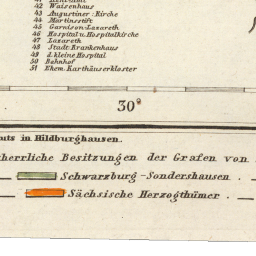 42 Waisenhaus
43 Augustiner-Kirche
44 Martinsstift
45 Garnison-Lazareth
46 Hospital u. Hospitalkirche
47 Lazareth
48 Stadt Krankenhaus
49 d. kleine Hospital
50 Bahnhof
51 Ehem. Karthäuserkloster
30°
uts in Hildburghausen.
herrliche Besitzungen der Grafen von
Schwarzburg-Sondershausen.
Sächsische Herzogthümer.